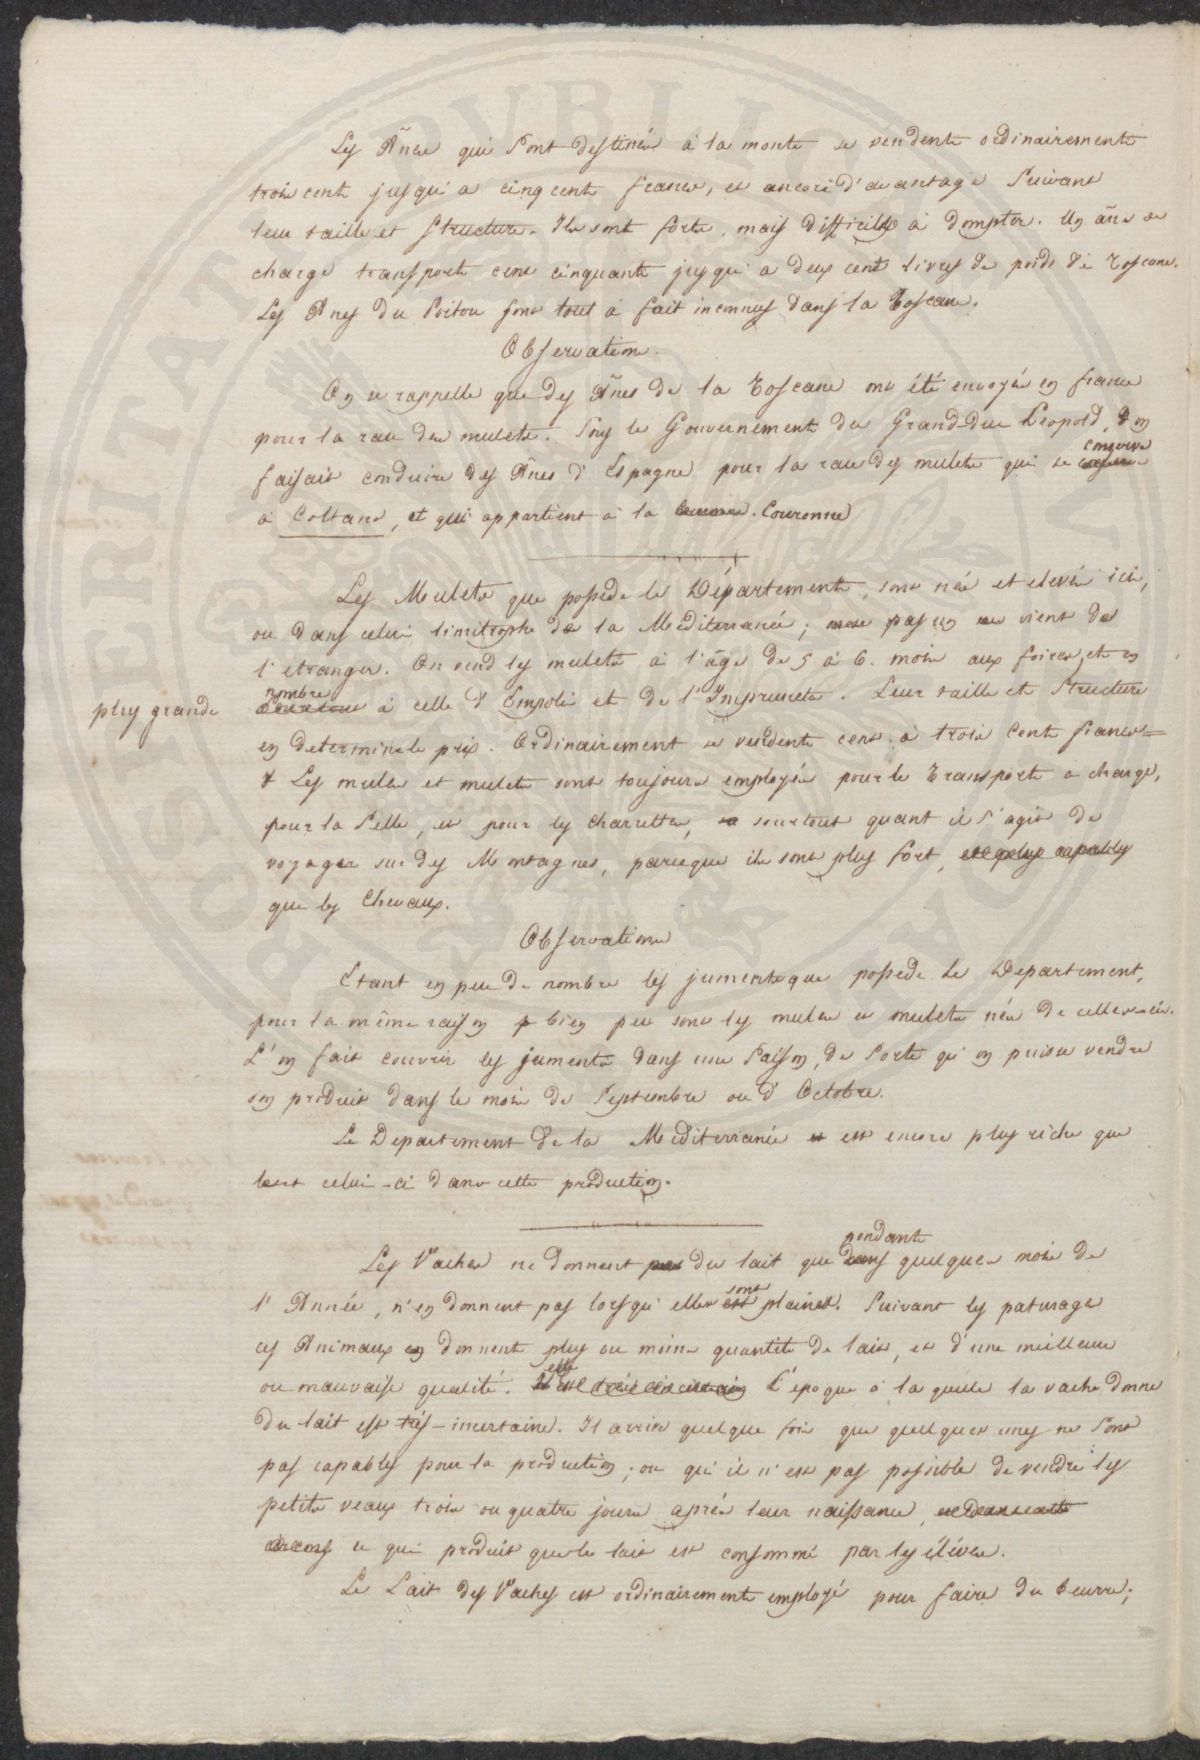 Les Ânes qui sont destinés à la monte se vendent ordinairement
trois cent jusqu'a cinq cent francs, et encore d'avantage suivant
leur taille et structure. Ils sont forts, mais difficiles à dompter. Un âne de
charge transporte cent cinquante jusqu'a deux cent livres de poids de Toscane.
Les Anes du Poitou sont tout à fait inconnus dans la Toscane.
Observations.
On se rappelle que des Ânes de la Toscane ont été envoyés en france
pour la race des mulets. Sous le Gouvernement du Grand-duc Léopold, on
conserve
faisait conduire des Ânes d'Espagne pour la race des mulets qui se
à Coltano, et qui appartient à la Couronne
Les Mulets que possède le Département, sont nés et elevés ici,
ou dans celui limitrophe de la Méditerranée; pas un ne vient de
l'etranger. On vend les mulets à l'âge de 5 à 6. mois aux foires, et en
plus grande nombre à celle d'Empoli et de l'Impruneta. Leur taille et structure
en determine le prix. Ordinairement se vendent cent à trois cent francs =
Les mules et mulets sont toujours employés pour le transport a charge,
pour la selle, et pour les charrettes, sourtout quant il s'agit de
voyager sur des Montagnes, parceque ils sont plus fort, et plus capables
que les Chevaux.
Observations
Etant en peu de nombre les juments que possede le Departement,
pour la même raison bien peu sont les mules et mulets nés de celles-cis.
L'on fait couvrir les juments dans une saison, de sorte qu'on puisse vendre
son produit dans le mois de Septembre ou d'Octobre.
Le Departement de la Méditerranée est encore plus riche que
celui-ci dans cette production.
pendant
Les Vaches ne donnent pas du lait que dans quelques mois de
sont
l'Année, n'en donnent pas lorsqu'elles est pleines. Suivant les paturages
ces Animaux en donnent plus ou moins quantité de lait, et d'une meilleure
ou mauvaise qualité. L'époque à la quelle la vache donne
du lait est très-incertaine. Il arrive quelque fois que quelques unes ne sont
pas capables pour la production; ou qu'il n'est pas possible de vendre les
petits veaux trois ou quatre jours après leur naissance,
ce qui produit que le lait est consommé par les élèves.
Le Lait des Vaches est ordinairement employé pour faire du beurre;